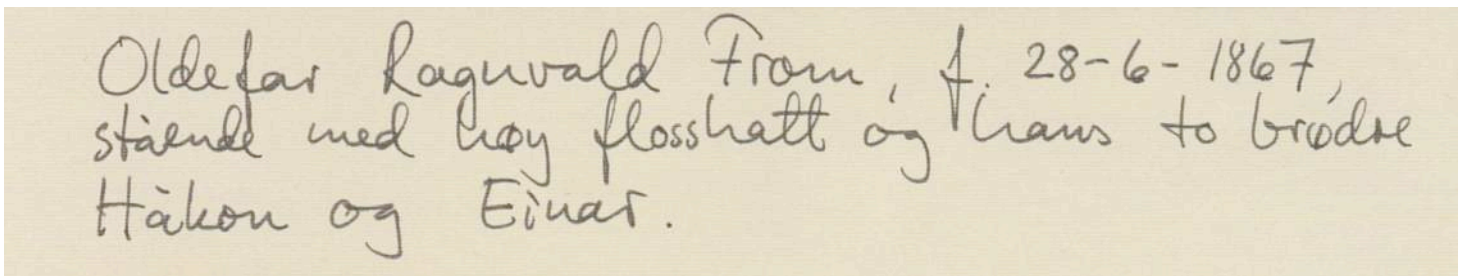 Oldefar Ragnvald From, f. 28-6-1867,
stående med høy flosshatt og hans to brødre
Håkon og Einar.